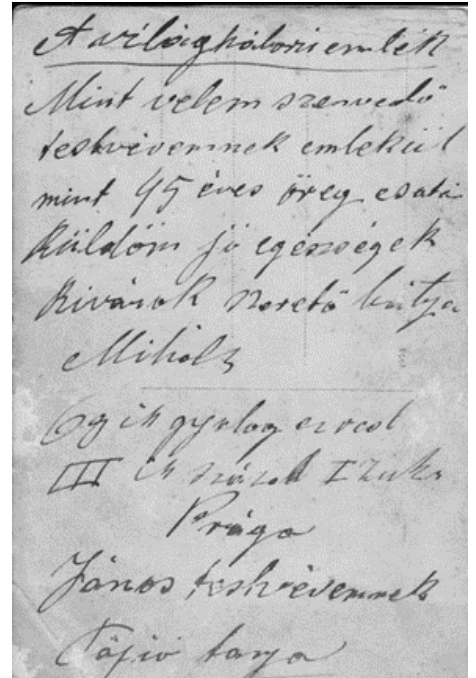 A világháborui emlék
Mint velem szenvedő
testvéremnek emlekül
mint 45 éves öreg csata
Küldöm jó egésségek
Kivánok szerető bátya
Mihály
69 ik gyalog ezred
III ik század I Zuk.
Prága
János testvéremnek
Tápió tanya